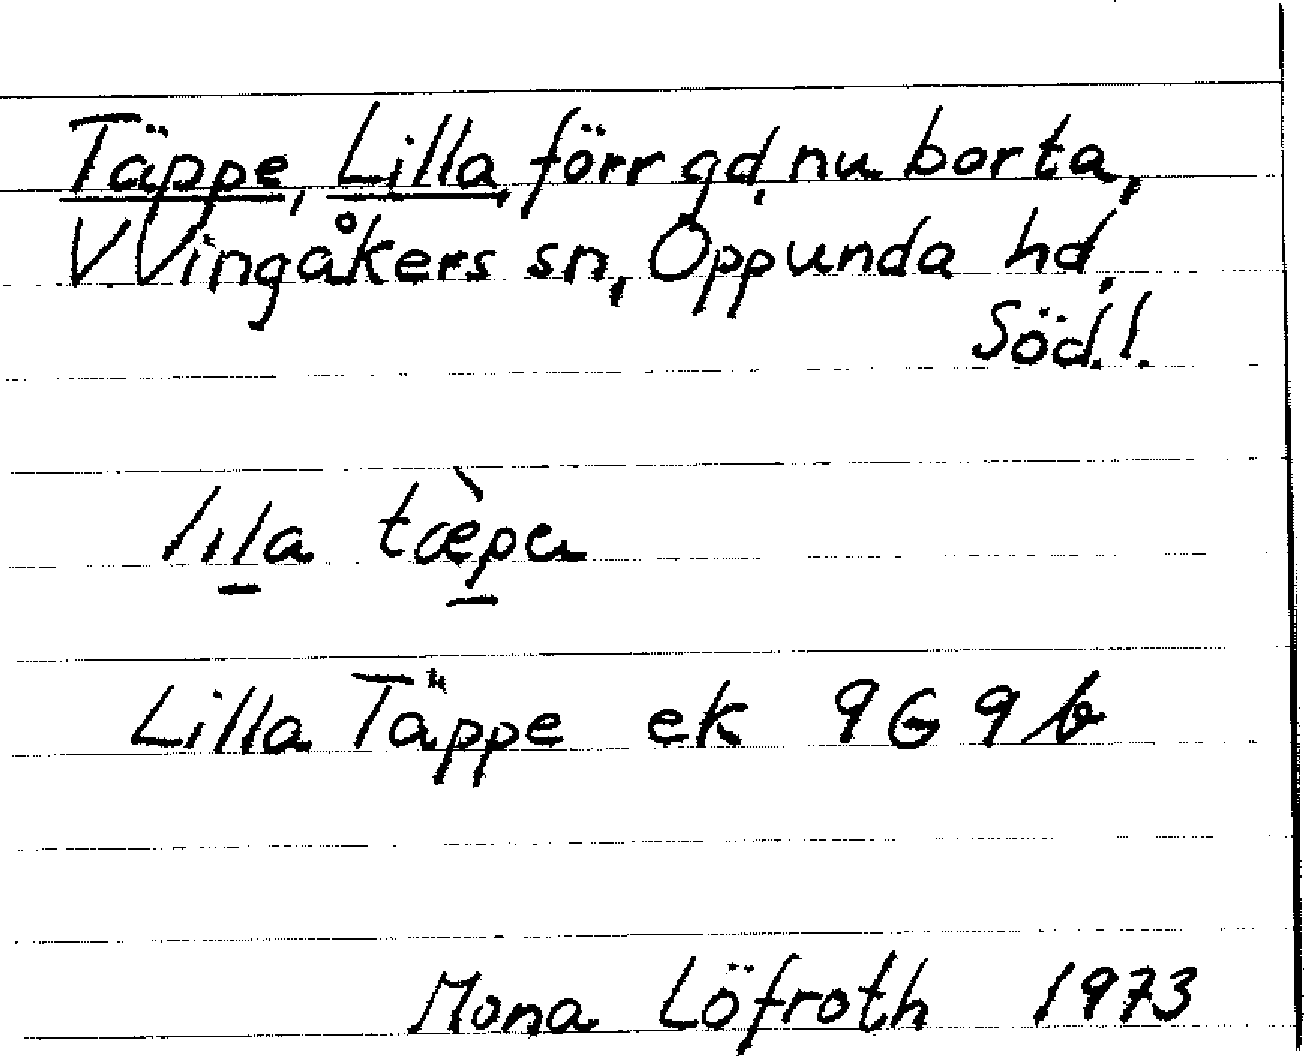 Täppe, Lilla, förr gd, nu borta,
V Vingåkers sn, Oppunda hd,
Söd.l.
lıl̲a tæ̀p̲a
Lilla Täppe ek 9G9b
Mona Löfroth 1973